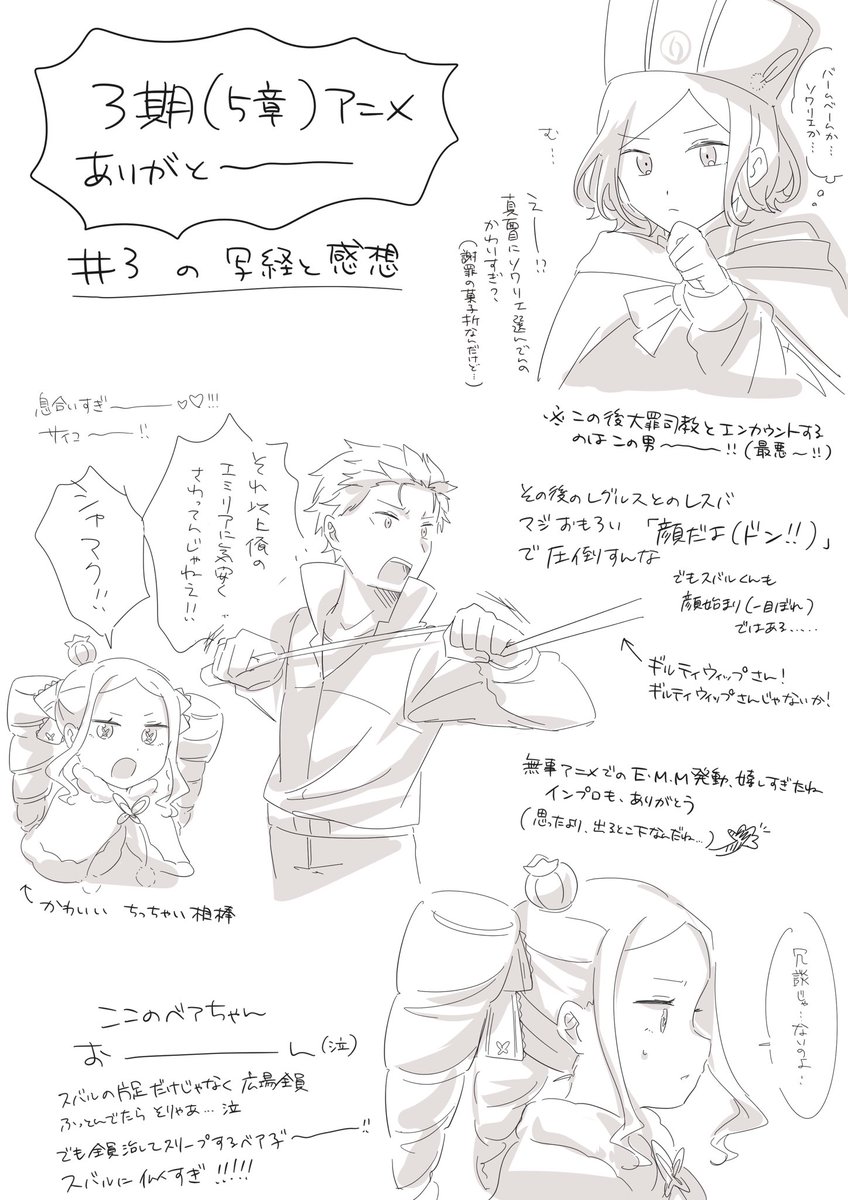 3期(5章)アニメ
ありがと――――
#3の写経と感想
バームベームか…
ソワリエか…
む…
えー!?
真面目にソワリエ選んでんの
かわいすぎ?、
(謝罪の菓子折なんだけど…)
※この後大罪司教とエンカウントする
のはこの男――――!!(最悪～!!)
息合いすぎ――――♡♡!!!
サイコ――!!
それ以上俺の
エミリアに気安く
さわってんじゃねえ!!
シャマク!!
その後のレグルスとのレスバ
マジおもろい「顔だよ(ドン!!)」
で圧倒すんな
でもスバルくんも
顔始まり(一目ぼれ)
ではある……
ギルティウィップさん!
ギルティウィップさんじゃないか!
無事アニメでのE・M・M発動、嬉しすぎたね
インプロも、ありがとう
(思ったより、出るとこ下なんだね…)
かわいい ちっちゃい相棒
冗談じゃ…ないのよ…
ここのベアちゃん
お――――ん(泣)
スバルの片足だけじゃなく広場全員
ふっとんでたらとりゃあ…泣
でも全員治してスリープするベア子――――!!
スバルに似すぎ!!!!!